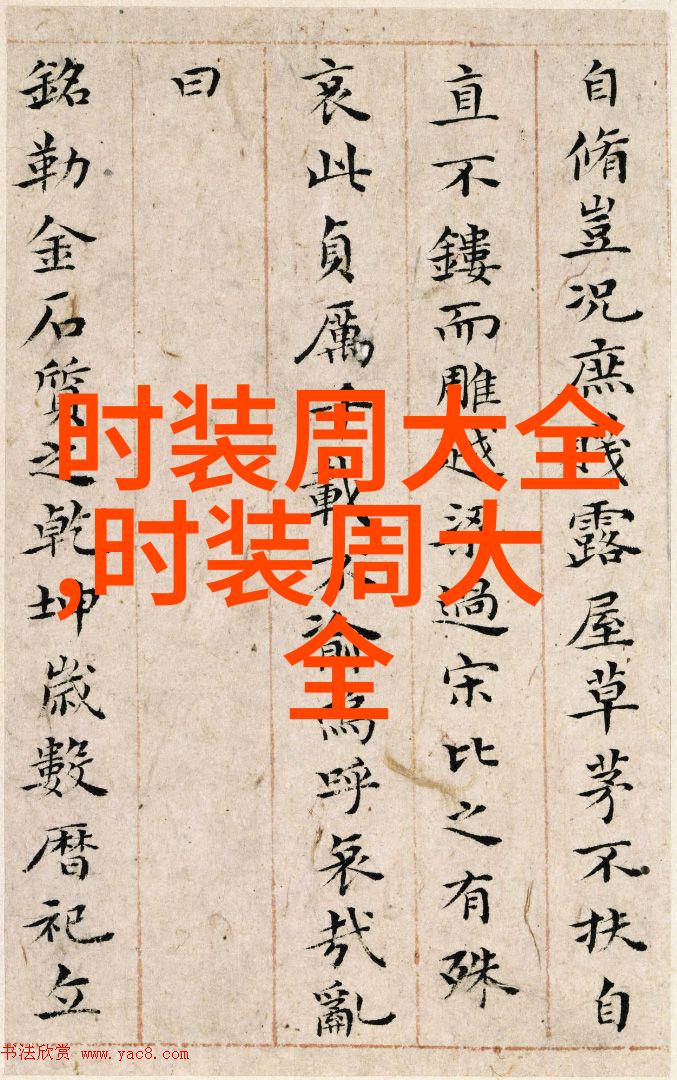 自脩豈況庶賤露屋草茅不扶自
直不鏤而雕越梁過宋比之有殊
哀此貞厲千載不渝嗚呼哀哉亂
曰
銘勒金石質之乾坤歲數曆祀立
时装周大全
,时装周大
全
书法欣赏 www.yac8.com